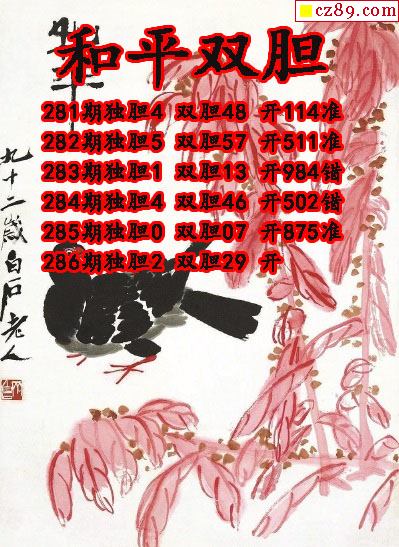 cz89.com
和平
和平双胆
281期独胆4 双胆48 开114准
282期独胆5 双胆57 开511准
283期独胆1 双胆13 开984错
284期独胆4 双胆46 开502错
285期独胆0 双胆07 开875准
286期独胆2 双胆29 开
九十二岁白石老人